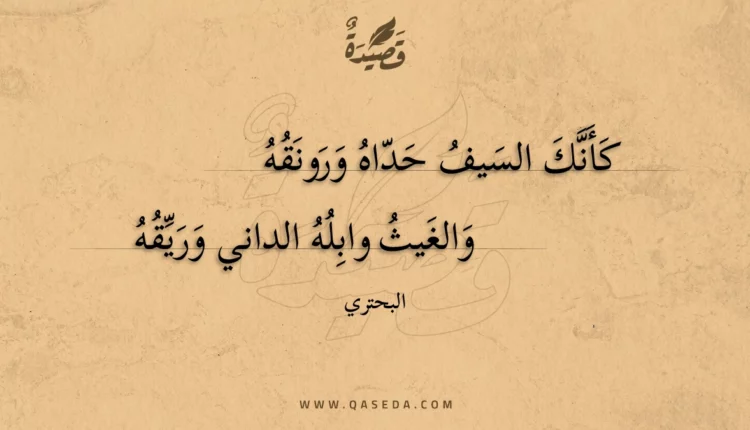 قَصِيْدَةٌ
كَأَنَّكَ السَيفُ حَدّاهُ وَرَونَقُهُ
وَالغَيثُ وابِلُهُ الداني وَرَيِّقُهُ
البحتري
WWW.QASEDA.COM